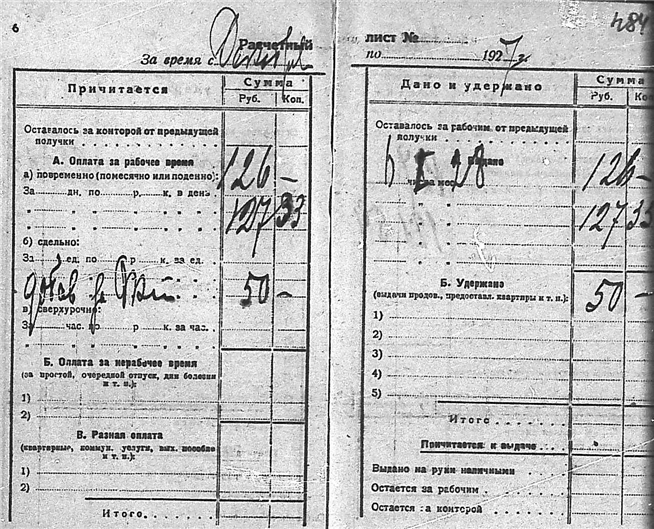 6
Расчетный
За время с
Причитается
Сумма
Руб. Коп.
Оставалось за конторой от предыдущей
получки
А. Оплата за рабочее время
а) повременно (помесячно или поденно):
126 –
За дн. по р. к. в день
127 33
б) сдельно:
За ед. по р. к. за ед.
50 –
в) сверхурочно:
За час. по р. к. за час.
Б. Оплата за нерабочее время
(за простой, очередной отпуск, дни болезни
и т. п.):
1)
2)
В. Разная оплата
(квартирные, коммун. услуги, вых. пособие
и т. п.):
1)
2)
Итого
484
лист №
по 1927 г.
Дано и удержано
Сумма
Руб. Коп.
Оставалось за рабочим от предыдущей
получки
28
126 –
127 33
Б. Удержано
(выдачи продов., предоставл. квартиры и т. п.):
50 –
1)
2)
3)
4)
5)
Итого
Причитается к выдаче
Выдано на руки наличными
Остается за рабочим
Остается за конторой